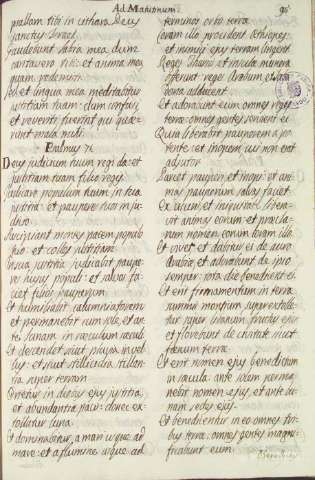 Ad Matutinum.
psallam tibi in cithara Deus
sanctus Israel.
Exultabunt labia mea dum
cantavero tibi: et anima mea
quam redemisti.
Sed et lingua mea meditabitur
justitiam tuam: dum confusi
et reveriti fuerint qui quæ-
runt mala mihi.
Psalmus 71
Deus judicium tuum regi da: et
justitiam tuam filio regis.
Judicare populum tuum in jus
titia: et pauperes tuos in ju-
dicio.
Suscipiant montes pacem popu
lo: et colles justitiam.
Judicabit paupe-
res populi: et salvos fa-
ciet filios pauperum
Et humiliabit calumniatorem
et permanebit cum sole, et an-
te lunam in
Et descendet sicut pluvia in vel
lus: et sicut stillicidia stillan-
tia super terram.
Orietur in diebus ejus justitia
et abundantia pacis: donec ex-
tollatur luna.
Et dominabitur, a mari usque ad
mare: et a flumine usque ad
terminos orbis terra
Coram illo procident Æthiopes:
et inimici ejus terram lingent
Reges Tharsis et insulæ munera
offerent: reges Arabum et Saba
dona adducent.
Et adorabunt eum omnes reges
terræ: omnes gentes servient ei
Quia liberabit pauperem a po-
tente: et inopem cui non erat
adjutor.
Parcet pauperi et inopi: et ani-
mas pauperum salvas faciet.
Ex usuris et iniquitate libera-
bit animas eorum: et hono-
nomen eorum coram illo.
Et vivet et dabitur ei de auro
Arabiæ et adorabunt de ipso
semper: tota die benedicent ei.
Et erit firmamentum in terra
summis montium superextolle-
tur super Libanum fructus ejus:
et florebunt de civitate sicut
fœnum terræ.
Et erit nomen ejus benedictum
in sæcula: ante solem perma
nebit nomen ejus,
Et benedicentur in eo omnes tri-
bus terræ: omnes gentes magni-
ficabunt eum.